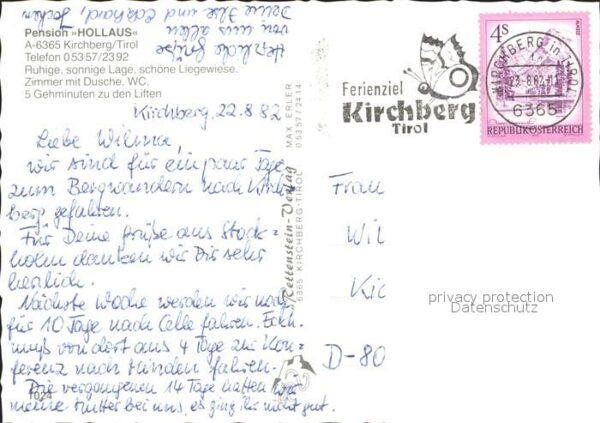 Pension »HOLLAUS«
A-6365 Kirchberg/Tirol
Telefon 05357/2392
Ruhige, sonnige Lage, schöne Liegewiese.
Zimmer mit Dusche, WC.
5 Gehminuten zu den Liften
Kirchberg, 22.8.82
Liebe Wilma,
wir sind für ein paar Tage
zum Bergwandern nach Kirch
berg gefahren.
Für Deine Grüße aus Stock=
holm danken wir Dir sehr
herzlich.
Nächste Woche werden wir noch
für 10 Tage nach Celle fahren. Eckh.
muß von dort aus 4 Tage zur Kon=
ferenz nach Minden fahren.
Die vergangenen 14 Tage hatten wir
meine Mutter bei uns, es ging ihr nicht gut.
Herzliche Grüße
von uns allen
Deine Ilse und Eckhard, Jochen
1024
MAX ERLER
05357/2414
Rettenstein-Verlag
6365 KIRCHBERG-TIROL
Ferienziel
Kirchberg
Tirol
4S
REPUBLIK ÖSTERREICH
KIRCHBERG in TIROL
23.-8.82
6365
Frau
Wil
Kic
D-80
privacy protection
Datenschutz